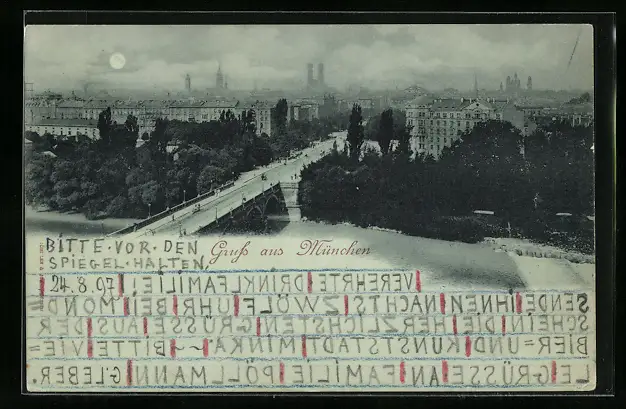 BITTE·VOR·DEN
SPIEGEL·HALTEN,
Gruß aus München
24.8.97!
VEREHRTE DRINKLFAMILIE!
SENDE IHNEN NACHTS ZWÖLF UHR BEI MONDE
SCHEIN DIE HERZLICHSTEN GRÜSSE AUS DER
BIER=UND KUNSTSTADT MINKA. ~ BITTE VIE=
LE GRÜSSE AN FAMILIE POLLMANN G.LEBER.